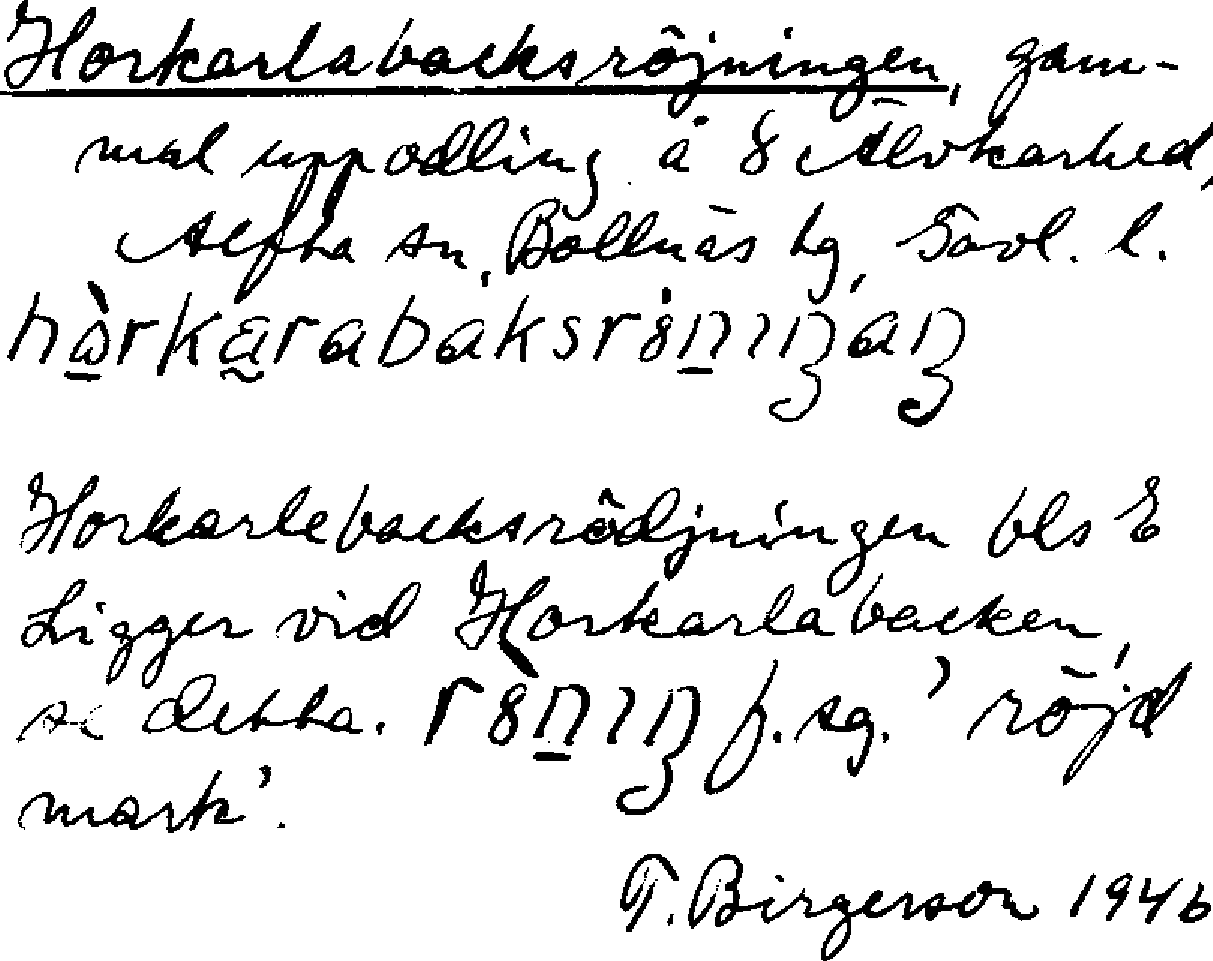 Horkarlabacksröjningen, gam-
mal uppodling å 8 Älvkarhed,
Alfta sn, Bollnäs tg, Gävl. l.
Horkarlebacksrödjningen bls E
Ligger vid Horkarlabacken,
se detta. f. sg. ’röjd
mark’.
T. Birgerson 1946